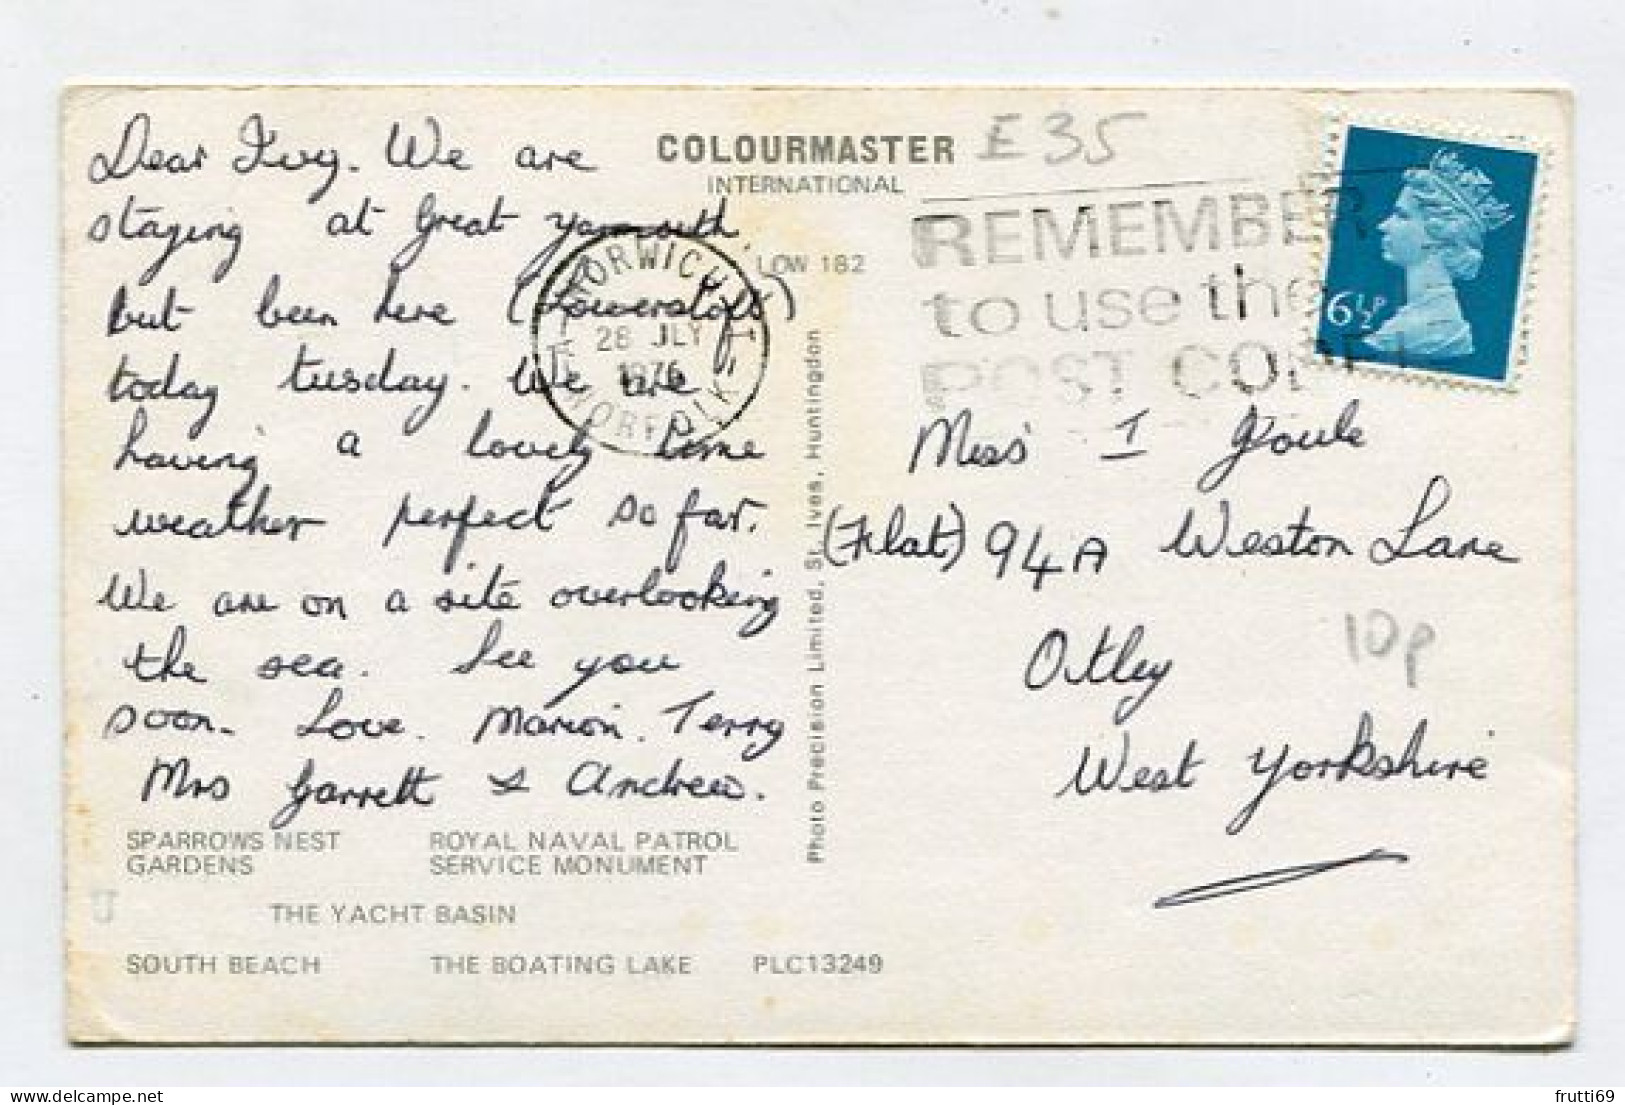 Dear Ivy. We are
staying at Great Yarmouth.
but been here (Lowerstoft)
today tusday. We are
having a lovely time
weather perfect so far.
We are on a site overlooking
the sea. See you
soon. Love. Marion. Terry
Mrs Garrett & Andrew.
COLOURMASTER
INTERNATIONAL
LOW 182
E35
NORWICH
28 JLY
1976
NORFOLK
REMEMBER
to use the
POST CODE
6½P
Miss I Joule
(Flat) 94A Weston Lane
Otley
West Yorkshire
10p
Photo Precision Limited, St. Ives, Huntingdon
SPARROWS NEST
GARDENS
ROYAL NAVAL PATROL
SERVICE MONUMENT
THE YACHT BASIN
SOUTH BEACH
THE BOATING LAKE
PLC13249
frutti69